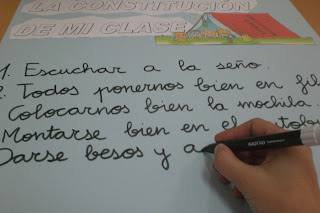 LA CONSTITUCIÓN
DE MI CLASE
1. Escuchar a la seño.
2. Todos ponernos bien en fil
Colocarnos bien la mochila.
Montarse bien en el autobu
Darse besos y a